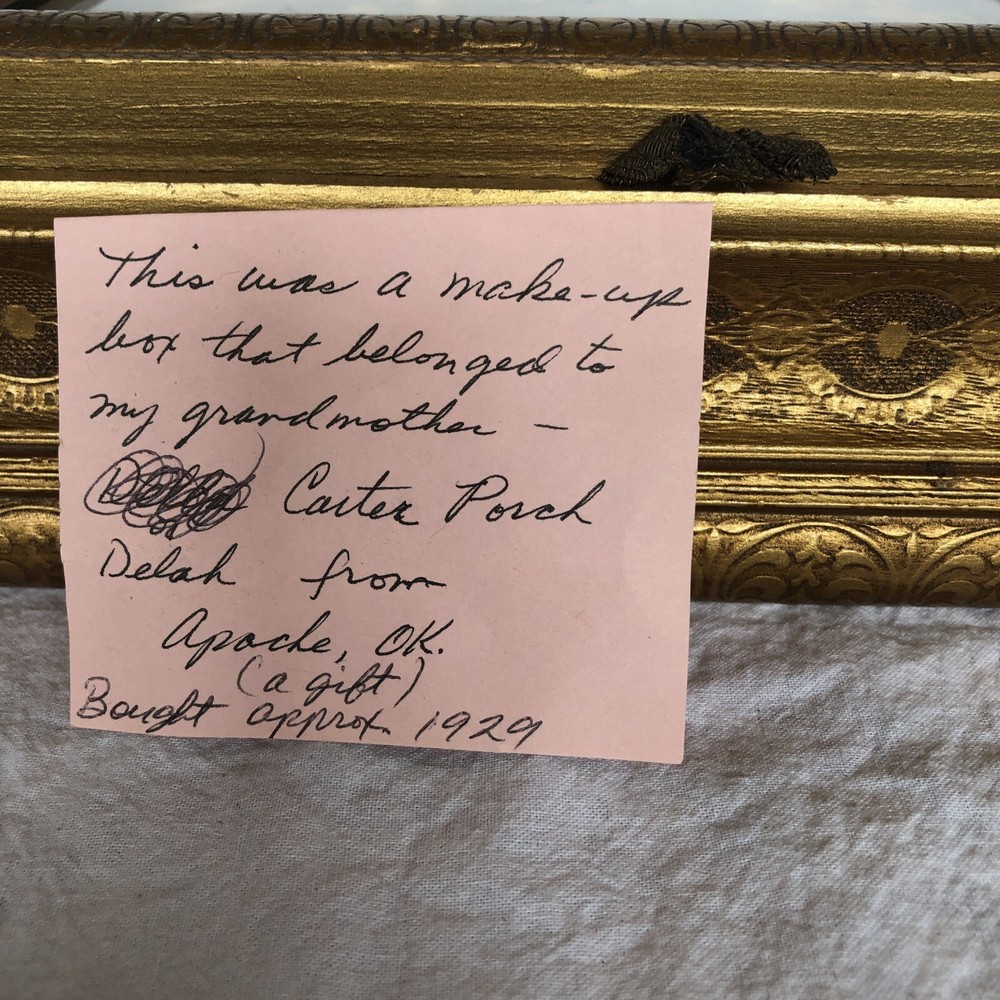 This was a make-up
box that belonged to
my grandmother –
Carter Porch
Delah from
Apache, OK.
(a gift)
Bought approx. 1929